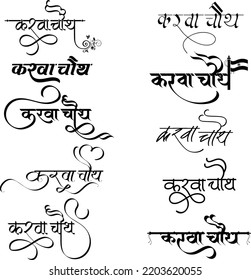 करवा चौथ
करवा चौथ
करवा चौथ
करवा चौथ
करवा चौथ
करवा चौथ
करवा चौथ
करवा चौथ
करवा चौथ
करवा चौथ
shutterstock.com · 2203620055